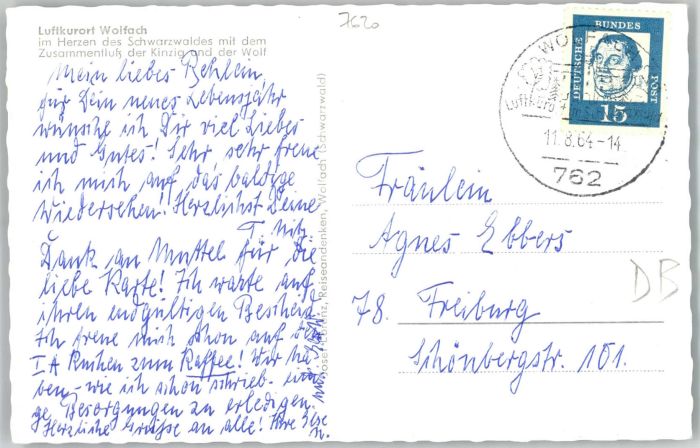 7620
Luftkurort Wolfach
im Herzen des Schwarzwaldes mit dem
Zusammenfluß der Kinzig und der Wolf
Mein liebes Rehlein,
für Dein neues Lebensjahr
wünsche ich Dir viel Liebes
und Gutes! Sehr sehr freue
ich mich auf das baldige
Wiedersehen! Herzlichst Deine
T.
Dank an Muttel für die
liebe Karte! Ich warte auf
ihren endgültigen Bescheid.
Ich freue mich schon auf
I A zum Kaffee! Wir ha-
ben - wie ich schon schrieb - eini-
ge Besorgungen zu erledigen.
Herzliche Grüße an alle! Ihre
Reiseandenken, Wolfach (Schwarzwald)
DEUTSCHE
BUNDES
POST
15
WOLFACH
Luftkurort
11.8.64-14
762
Fräulein
Agnes Ebbers
78. Freiburg
Schönbergstr. 101.
DB